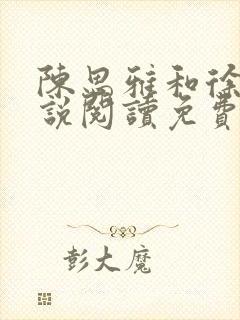 陳思雅和徐
說閱讀免費
彭大魔